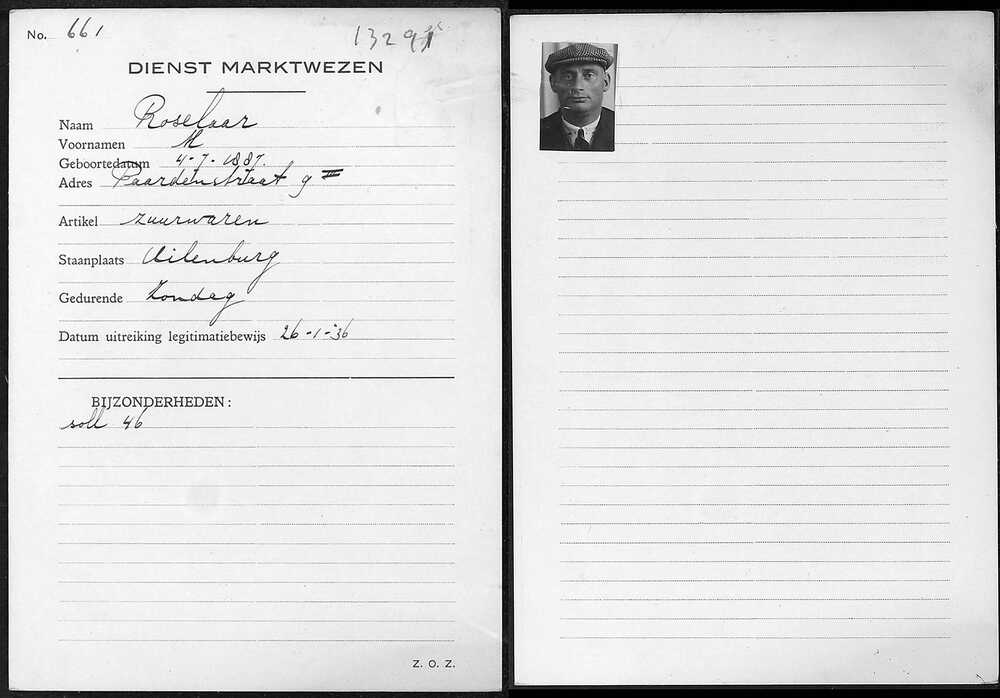 No. 661
1329
DIENST MARKTWEZEN
Naam Roselaar
Voornamen M
Geboortedatum 4-7-1887.
Adres Paardenstraat 9 II
Artikel zuurwaren
Staanplaats Uilenburg
Gedurende Zondag
Datum uitreiking legitimatiebewijs 26-1-36
BIJZONDERHEDEN:
soll 46
Z. O. Z.